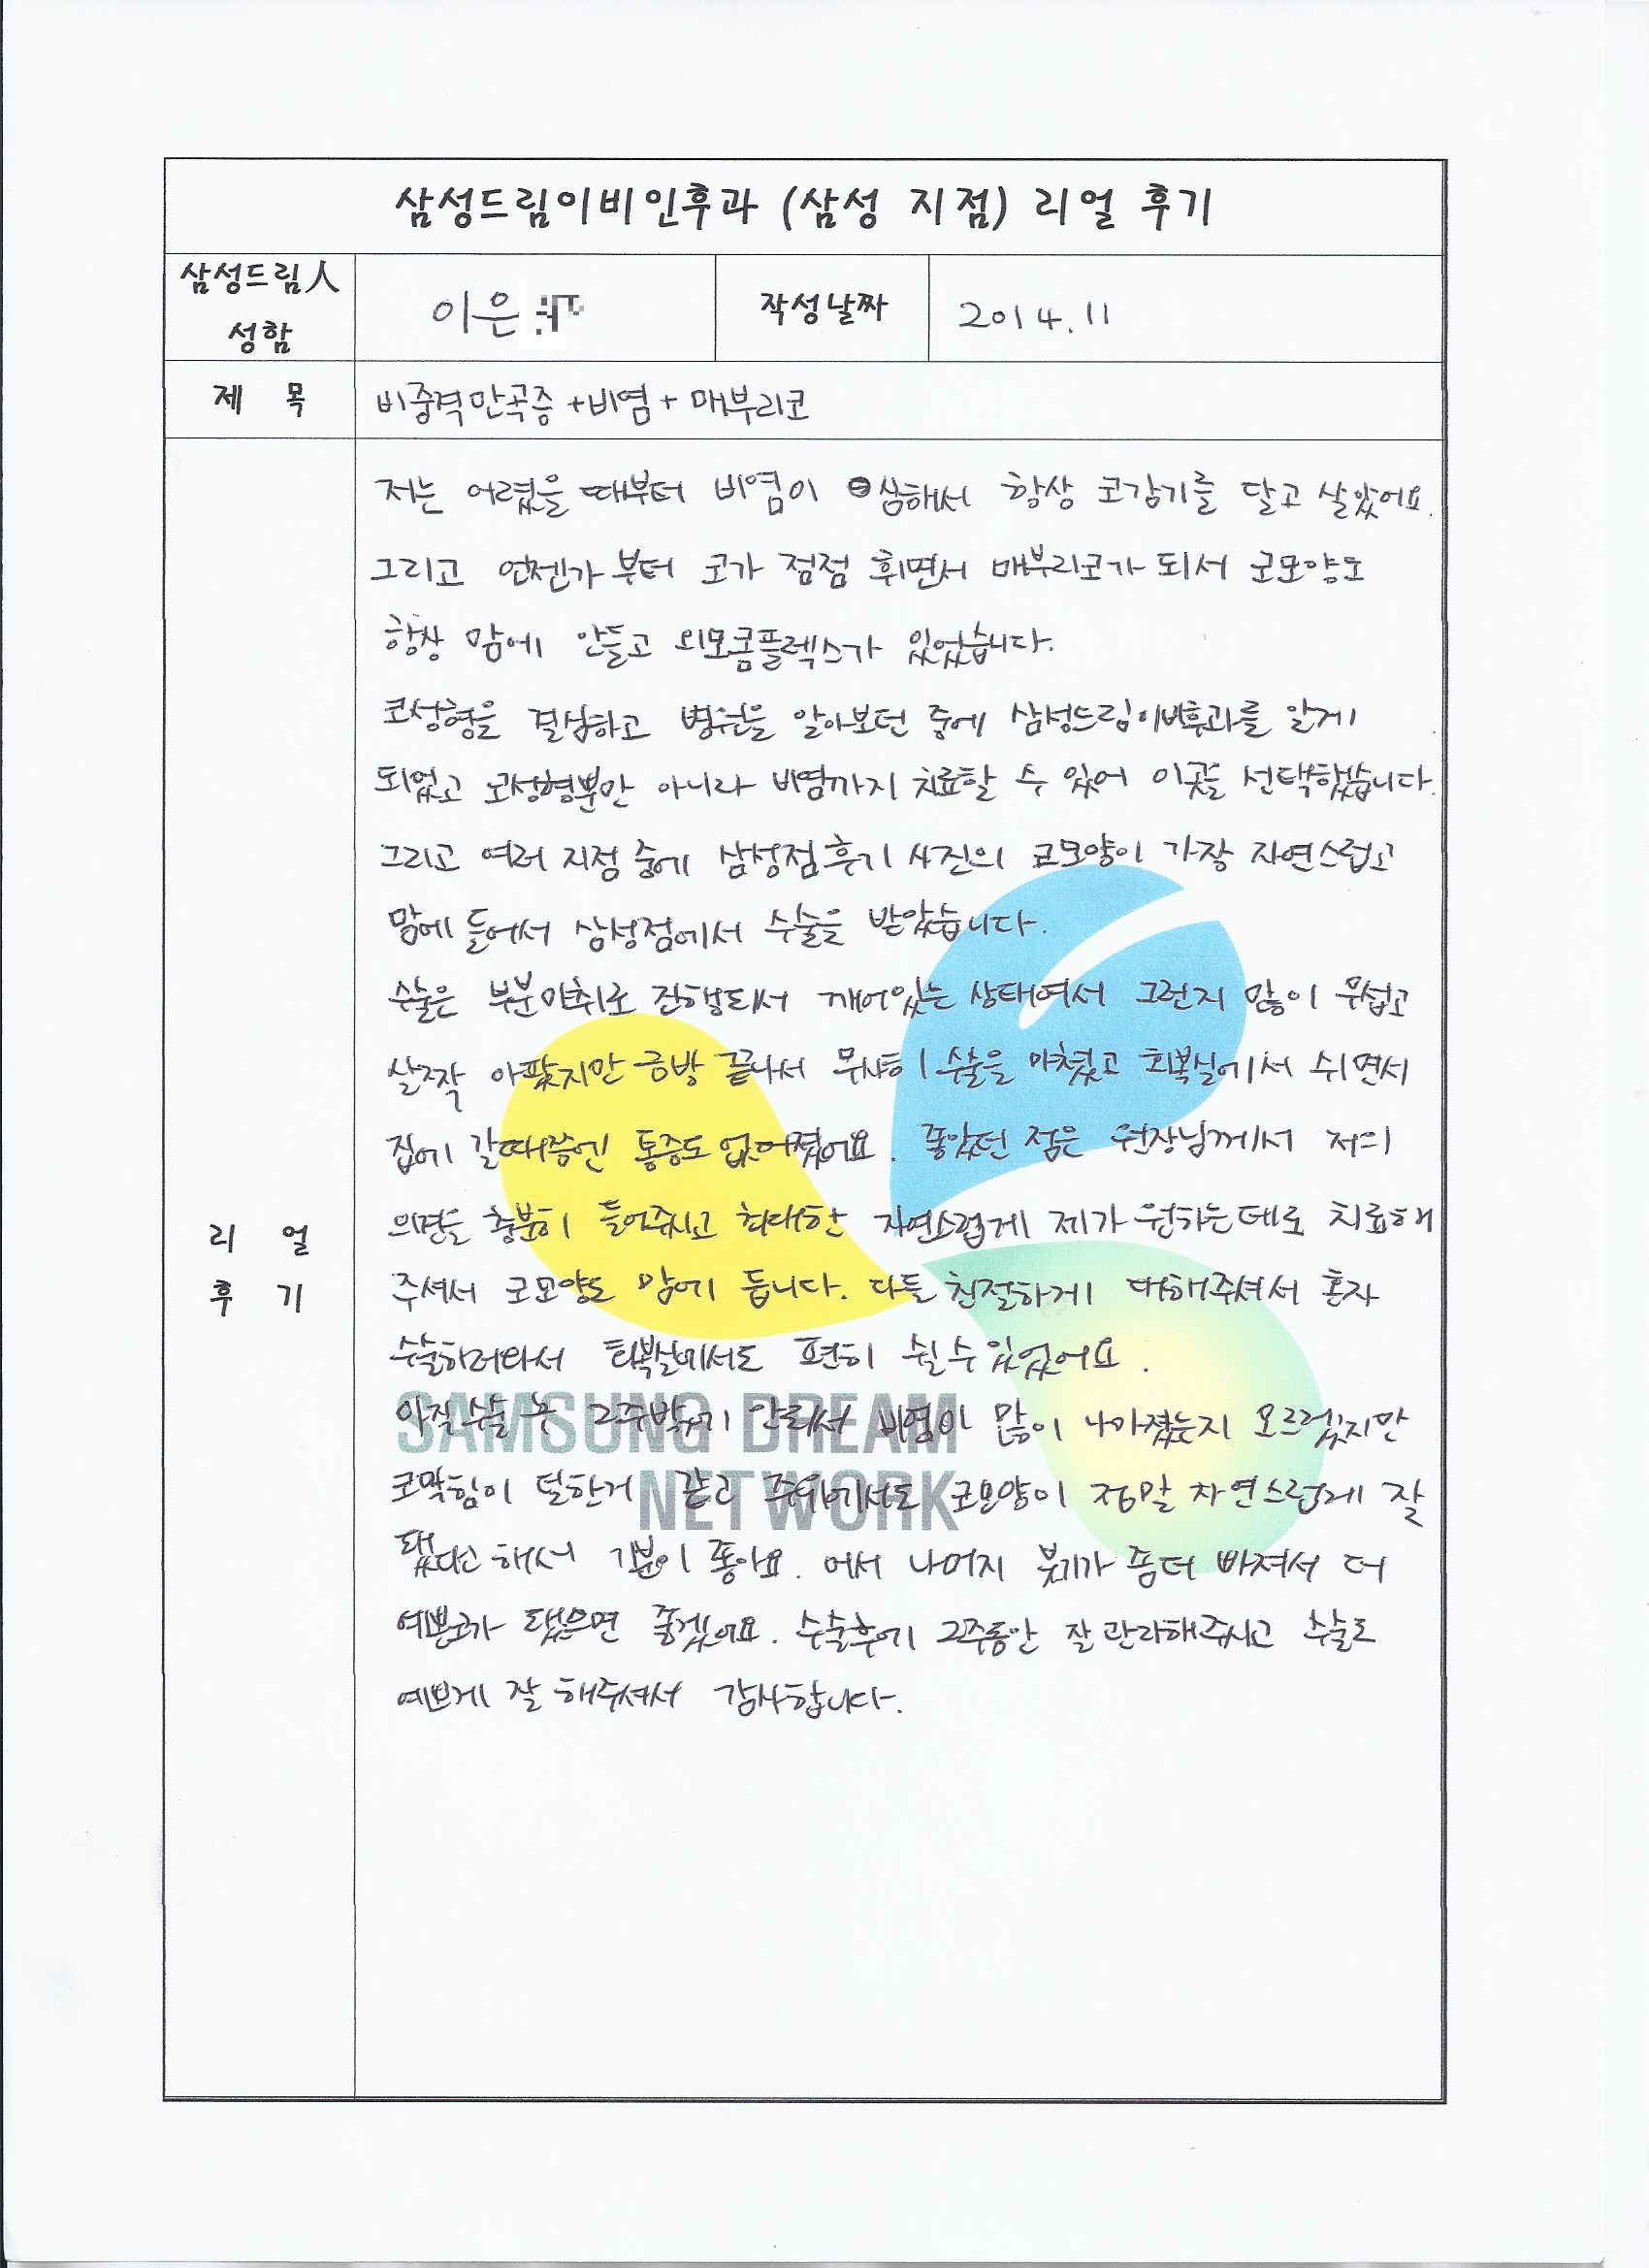 삼성드림이비인후과 (삼성 지점) 리얼 후기
삼성드림人
성함
이은
작성날짜
2014.11
제 목
비중격만곡증 + 비염 + 매부리코
리 얼
후 기
저는 어렸을 때부터 비염이 심해서 항상 코감기를 달고 살았어요.
그리고 언젠가 부터 코가 점점 휘면서 매부리코가 되서 코모양도
항상 맘에 안들고 외모콤플렉스가 있었습니다.
코성형을 결심하고 병원을 알아보던 중에 삼성드림이비후과를 알게
되었고 코성형뿐만 아니라 비염까지 치료할 수 있어 이곳을 선택했습니다.
그리고 여러 지점 중에 삼성점후기 사진의 코모양이 가장 자연스럽고
맘에 들어서 삼성점에서 수술을 받았습니다.
수술은 부분마취로 진행되서 깨어있는 상태여서 그런지 많이 무섭고
살짝 아팠지만 금방 끝나서 무사히 수술을 마쳤고 회복실에서 쉬면서
집에 갈때쯤엔 통증도 없어졌어요. 좋았던 점은 원장님께서 저의
의견을 충분히 들어주시고 최대한 자연스럽게 제가 원하는데로 치료해
주셔서 코모양도 맘에 듭니다. 다들 친절하게 대해주셔서 혼자
수술하러와서 회복실에서도 편히 쉴수있었어요.
아직 수술 후 2주밖에 안되서 비염이 많이 나아졌는지 모르겠지만
코막힘이 덜한거 같고 주위에서도 코모양이 정말 자연스럽게 잘
됐다고 해서 기분이 좋아요. 어서 나머지 붓기가 좀더 빠져서 더
예쁜코가 됐으면 좋겠어요. 수술후에 2주동안 잘 관리해주시고 수술도
예쁘게 잘 해주셔서 감사합니다.
SAMSUNG DREAM
NETWORK